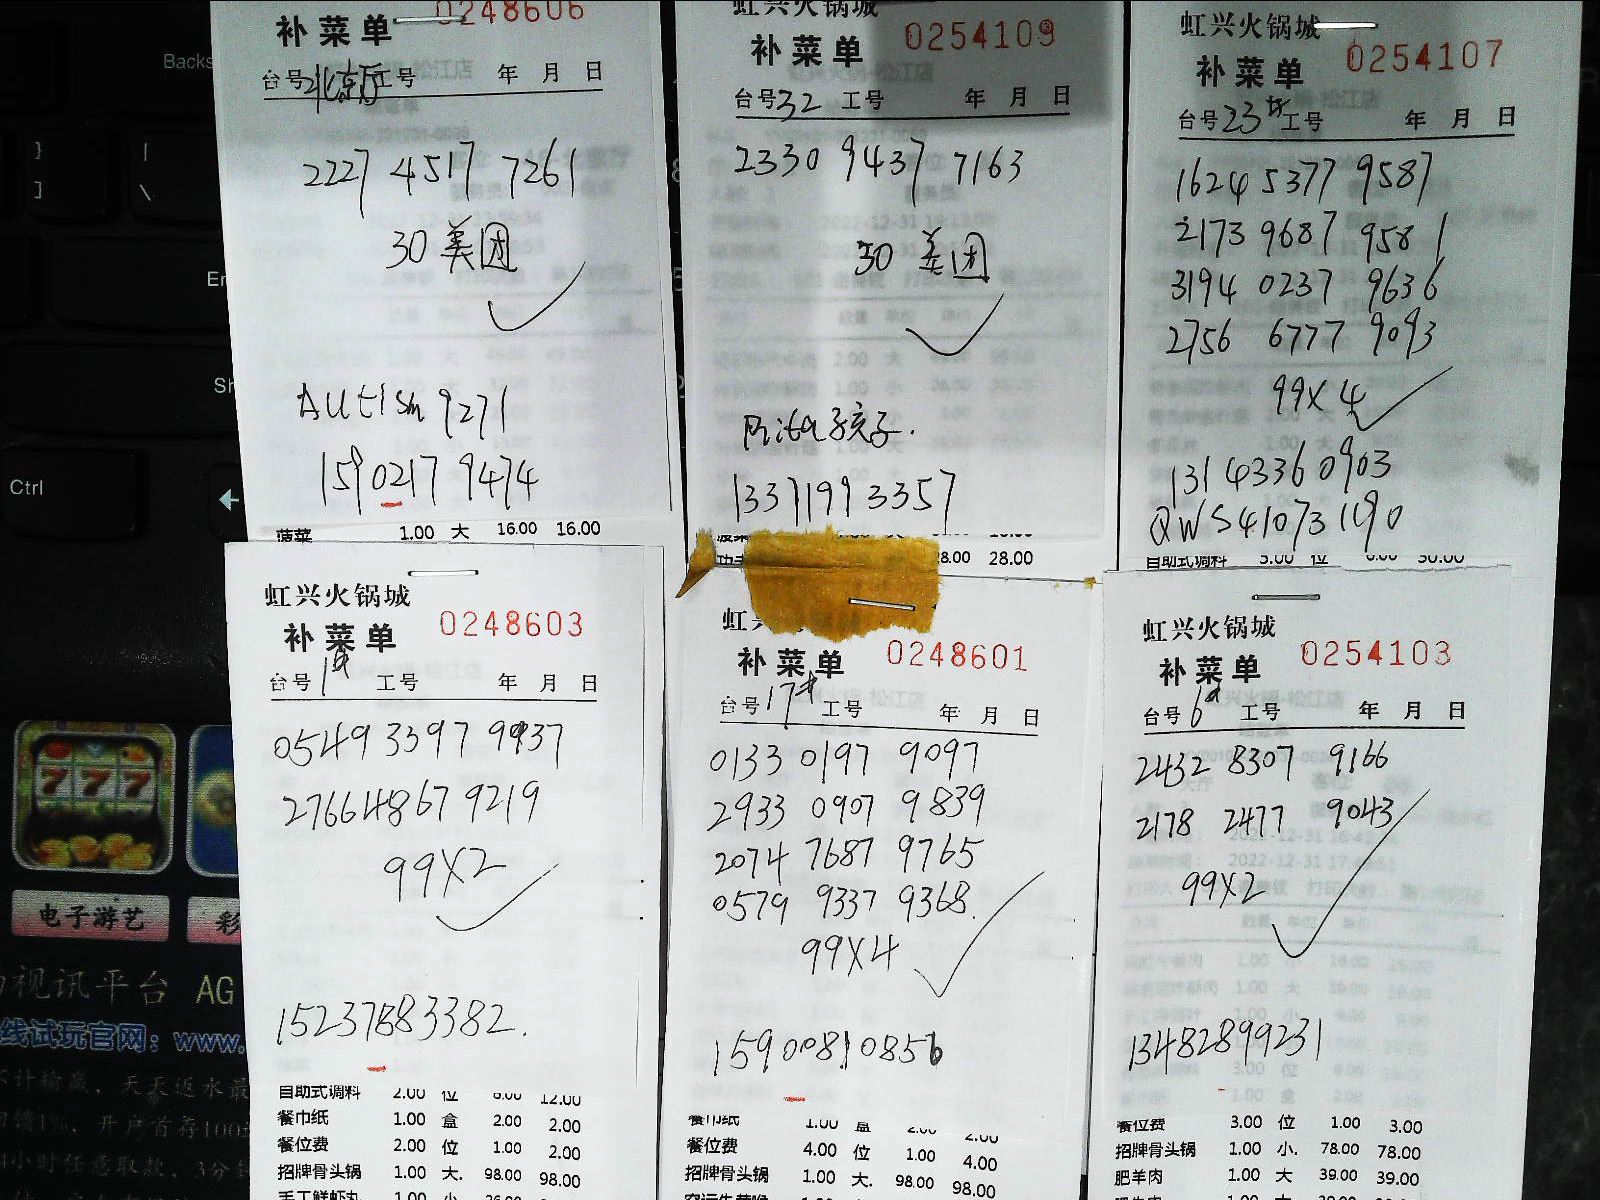 0248606
补菜单
台号北京厅 工号 年 月 日
2227 4517 7261
30 美团
Autism 9271
159 0217 9474
菠菜 1.00 大 16.00 16.00
虹兴火锅城
0254109
补菜单
台号32 工号 年 月 日
2330 9437 7163
30 美团
Rita孩子.
13371993357
28.00 28.00
虹兴火锅城
0254107
补菜单
台号23# 工号 年 月 日
1624 5377 9587
2173 9687 9581
3194 0237 9636
2756 6777 9093
99X4
13143360903
QWS410731190
自助式调料 5.00 位 6.00 30.00
虹兴火锅城
0248603
补菜单
台号1# 工号 年 月 日
0549 3397 9937
2766 4867 9219
99X2
15237583382.
自助式调料 2.00 位 6.00 12.00
餐巾纸 1.00 盒 2.00 2.00
餐位费 2.00 位 1.00 2.00
招牌骨头锅 1.00 大. 98.00 98.00
手工鲜虾丸 1.00 小
虹兴
0248601
补菜单
台号17# 工号 年 月 日
0133 0197 9097
2933 0907 9839
2074 7687 9765
0579 9337 9368.
99X4
15900810856
餐巾纸 1.00 盒 2.00 2.00
餐位费 4.00 位 1.00 4.00
招牌骨头锅 1.00 大. 98.00 98.00
虹兴火锅城
0254103
补菜单
台号6# 工号 年 月 日
2432 8307 9166
2178 2477 9043
99X2
13482899231
餐位费 3.00 位 1.00 3.00
招牌骨头锅 1.00 小. 78.00 78.00
肥羊肉 1.00 大 39.00 39.00
Backs
}
]
|
\
Ctrl
电子游艺
彩
视讯平台 AG
线试玩官网：www.
不计输赢，天天返水最
1%，开户首存100
小时任意取款，3分钟